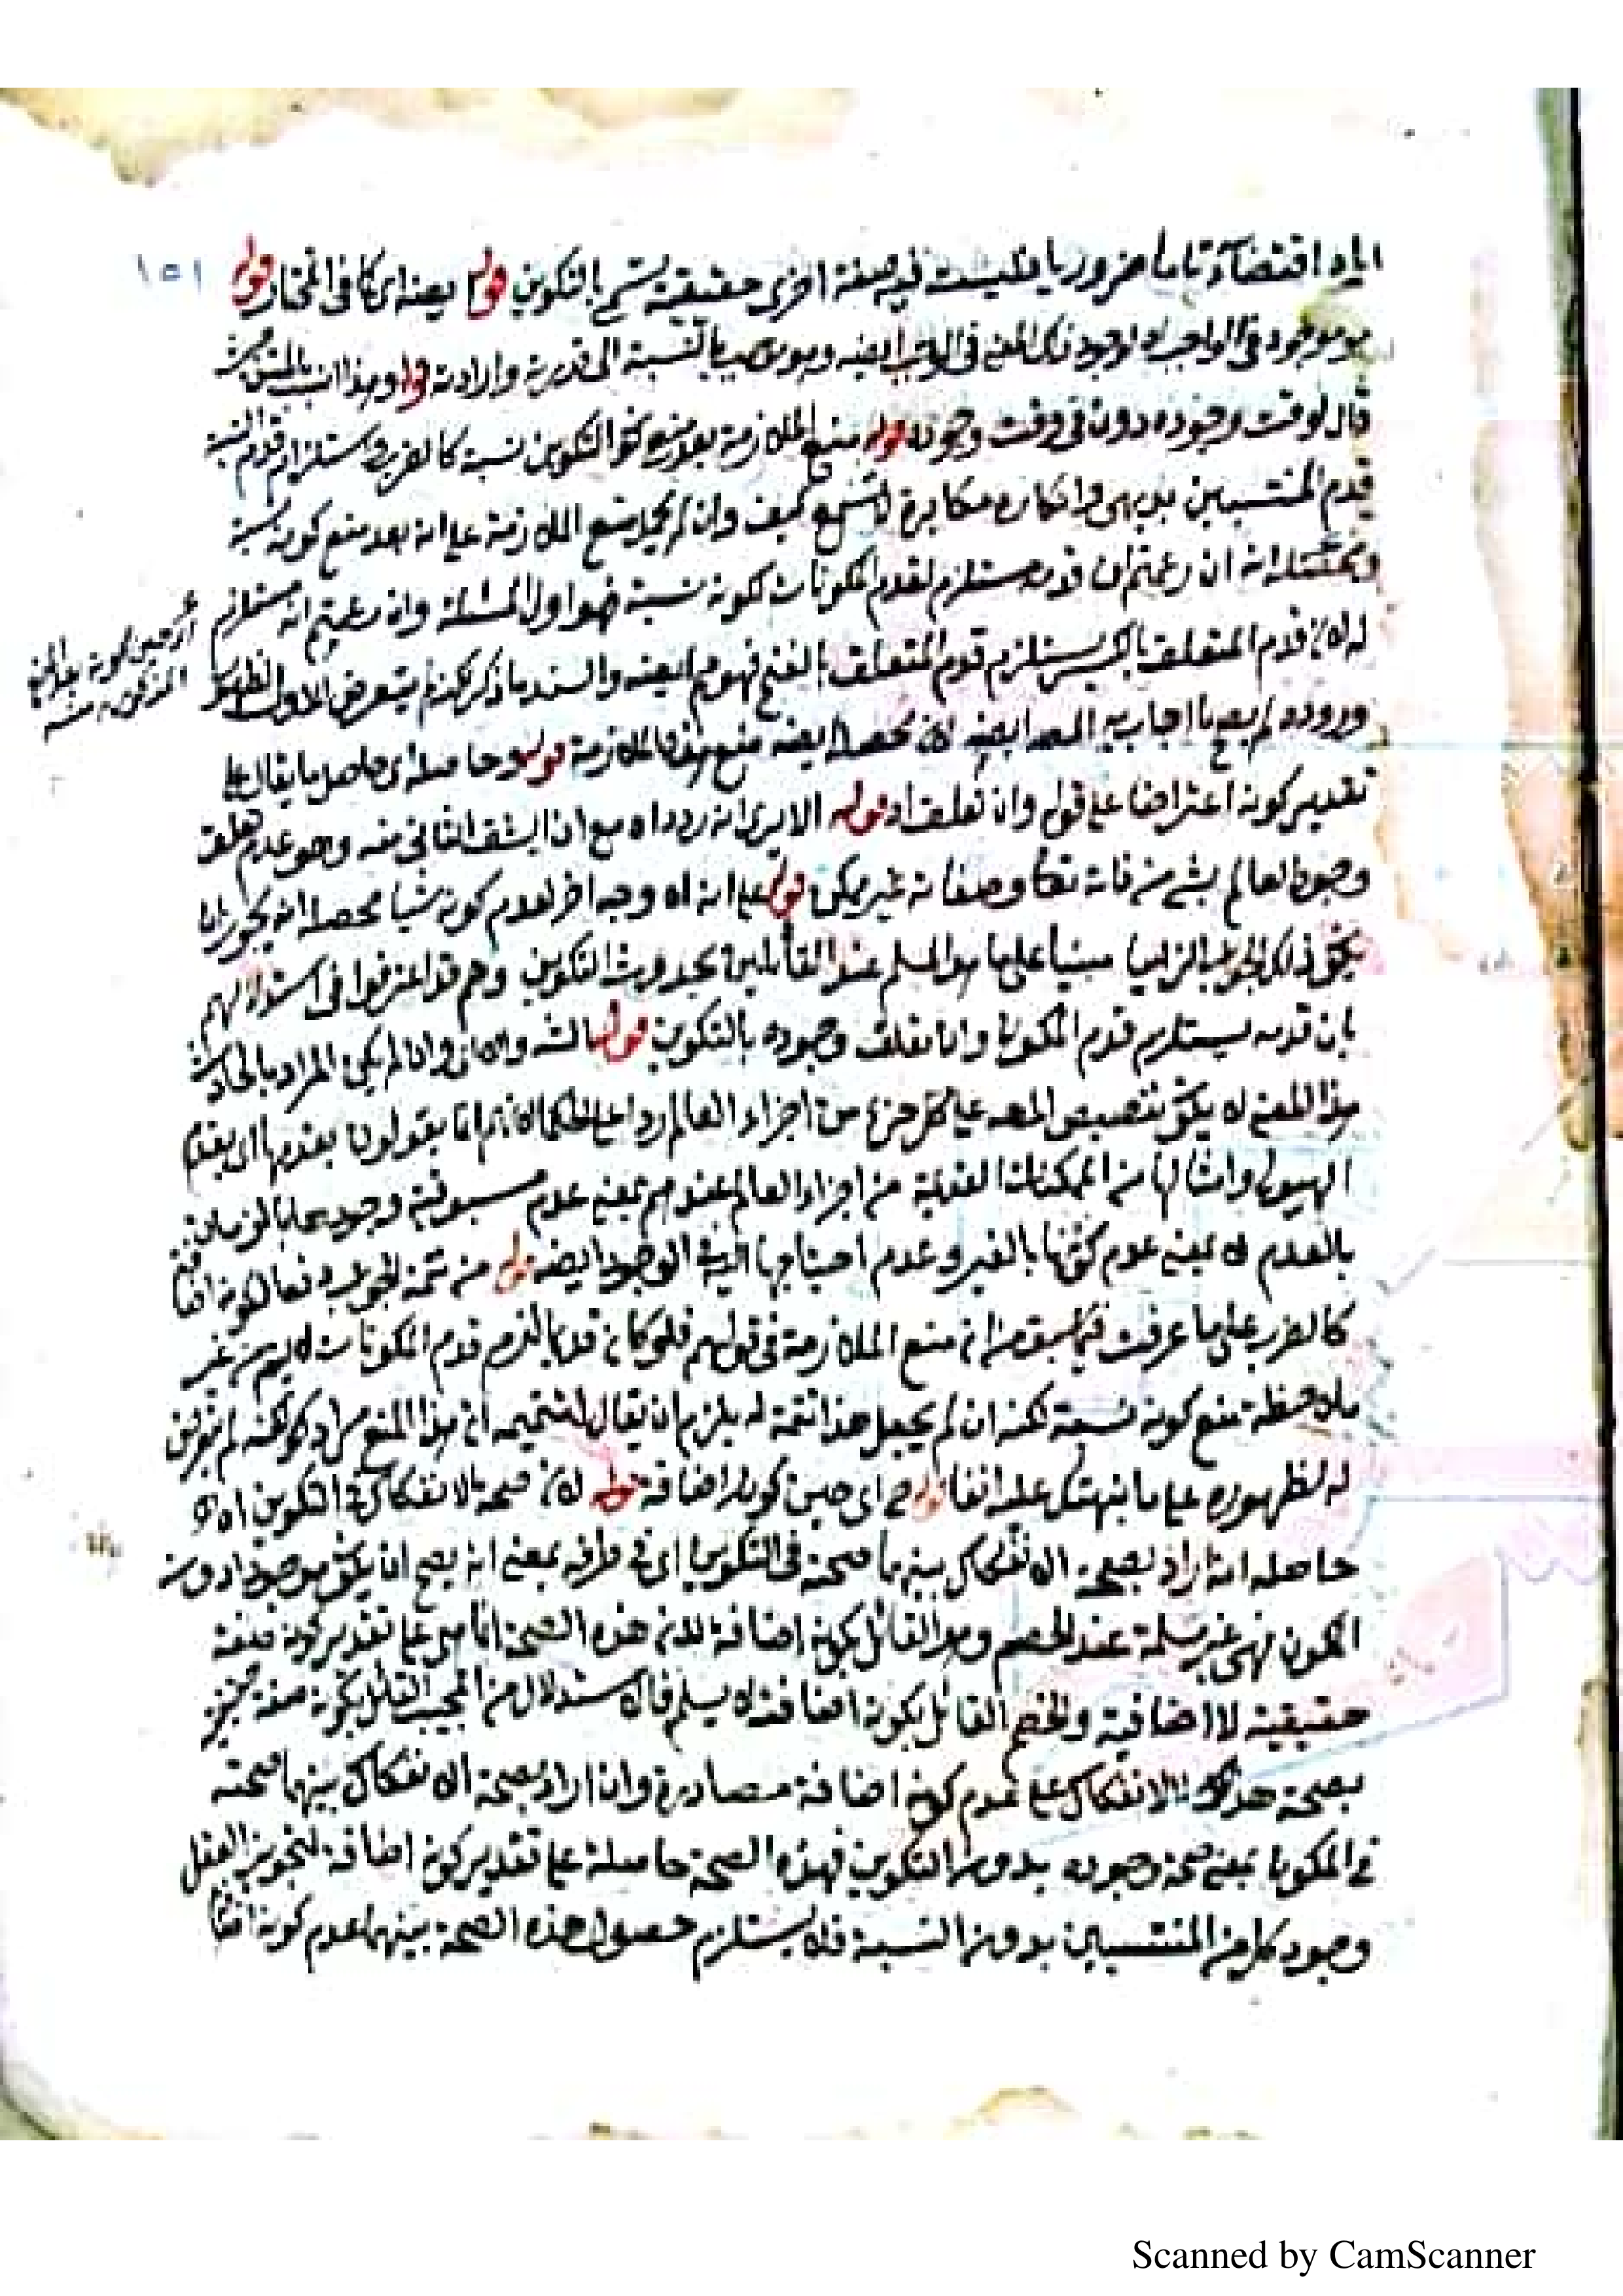 ١٥١
اياه اقتضاء تاما ضروريا فليست فيه صفة اخرى حقيقية تسمى بالتكوين قوله بعينه اى كما فى المختار قوله
هو موجود فى الواجب اه لوجود ذلك المعنى فى الواجب ايضه وهو موصوف بالنسبة الى قدرته وارادته قوله وهذا انسب بالمتن حيث
قال لوقت وجوده دون فى وقت وجوده قوله منع الملازمة بعد منع كون التكوين نسبة كالضرب واستلزام قدم النسبة
قدم المنتسبين بديهى وانكاره مكابرة لا تسمع كيف وان لم يجد منع الملازمة على انه بعد منع كونه نسبة
انه ان زعمتم ان قدمه مستلزم لقدم المكونات لكونه نسبة فهو اول المسئلة وان زعمتم انه مستلزم
له لان قدم المتعلق بالكسر يستلزم قدم المتعلق بالفتح فهو مم ايضه والسند ما ذكر لكنه لم يتعرض للاول لظهور
وروده لم يصح ما اجاب به المصه ايضه لان محصله ايضه منع هذه الملازمة قوله وحاصله اى حاصل ما يقال على
تقدير كونه اعتراضا على قوله وان تعلق اه قوله الا يرى انه ردد اه مع ان الشق الثانى منه وهو عدم تعلق
وجود العالم بشئ من ذاته تعا وصفاته غير ممكن قوله على انه اه وجه اخر لعدم كونه شيا محصله انه يجوز ان
يكون ذلك الجواب الزاميا مبنيا على ما هو المسلم عند القائلين بحدوث التكوين وهم قد اعترفوا فى استدلالهم
بان قدمه يستلزم قدم المكونا وانما تعلق وجوده بالتكوين قوله الشه والا اى وان لم يكن المراد بالحادث
هذا المعنى لا يكون تنصيص المصه على كل جزء من اجزاء العالم ردا على الحكما لانهم انما يقولون بقدمها اى بقدم
الهيولى وامثالها من الممكنات القديمة من اجزاء العالم عندهم بمعنى عدم مسبوقية وجودها بالزمان
بالعدم لا بمعنى عدم تكونها بالغير وعدم احتياجها اليه فى الوجود ايضه قوله من تتمة الجواب دفعا لكونه اضافة
كالضرب على ما عرفت فيما سبق من ان منع الملازمة فى قولهم فلو كان قديما لزم قدم المكونات لا يتم من غير
ملاحظة منع كونه نسبة لكنه ان لم يجعل هذا تتمة له يلزم ان يقال لتتميمه ان هذا المنع مراد لكنه لم يتعرض
له لظهوره على ما نبهتك عليه انفا قوله ح اى حين كونه اضافة قوله لان صحة الانفكاك فى التكوين اه
حاصله انه اراد بصحة الانفكاك بينهما صحته فى التكوين اى فى طرفه بمعنى انه يصح ان يكون موجودا دون
المكون فهى غير مسلمة عند الخصم وهو القائل بكونه اضافة لان هذه الصحة انما هى على تقدير كونه صفة
حقيقية لا اضافية والخصم القائل بكونه اضافة لا يسلم فالاستدلال من المجيب القائل بكونه صفة حقيقية
بصحة هذا الانفكاك على عدم كونه اضافة مصادرة وان اراد بصحة الانفكاك بينهما صحته
فى المكونا بمعنى صحة وجوده بدون التكوين فهذه الصحة حاصلة على تقدير كونه اضافة لتجويز العقل
وجود كل من المنتسبين بدون النسبة فلا يستلزم حصول هذه الصحة بينهما عدم كونه اضافة
Scanned by CamScanner